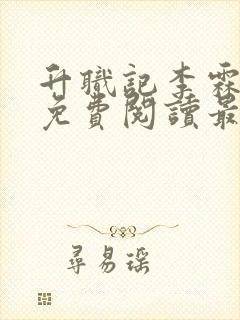 升職記李霖
免費閱讀最
尋易瑶